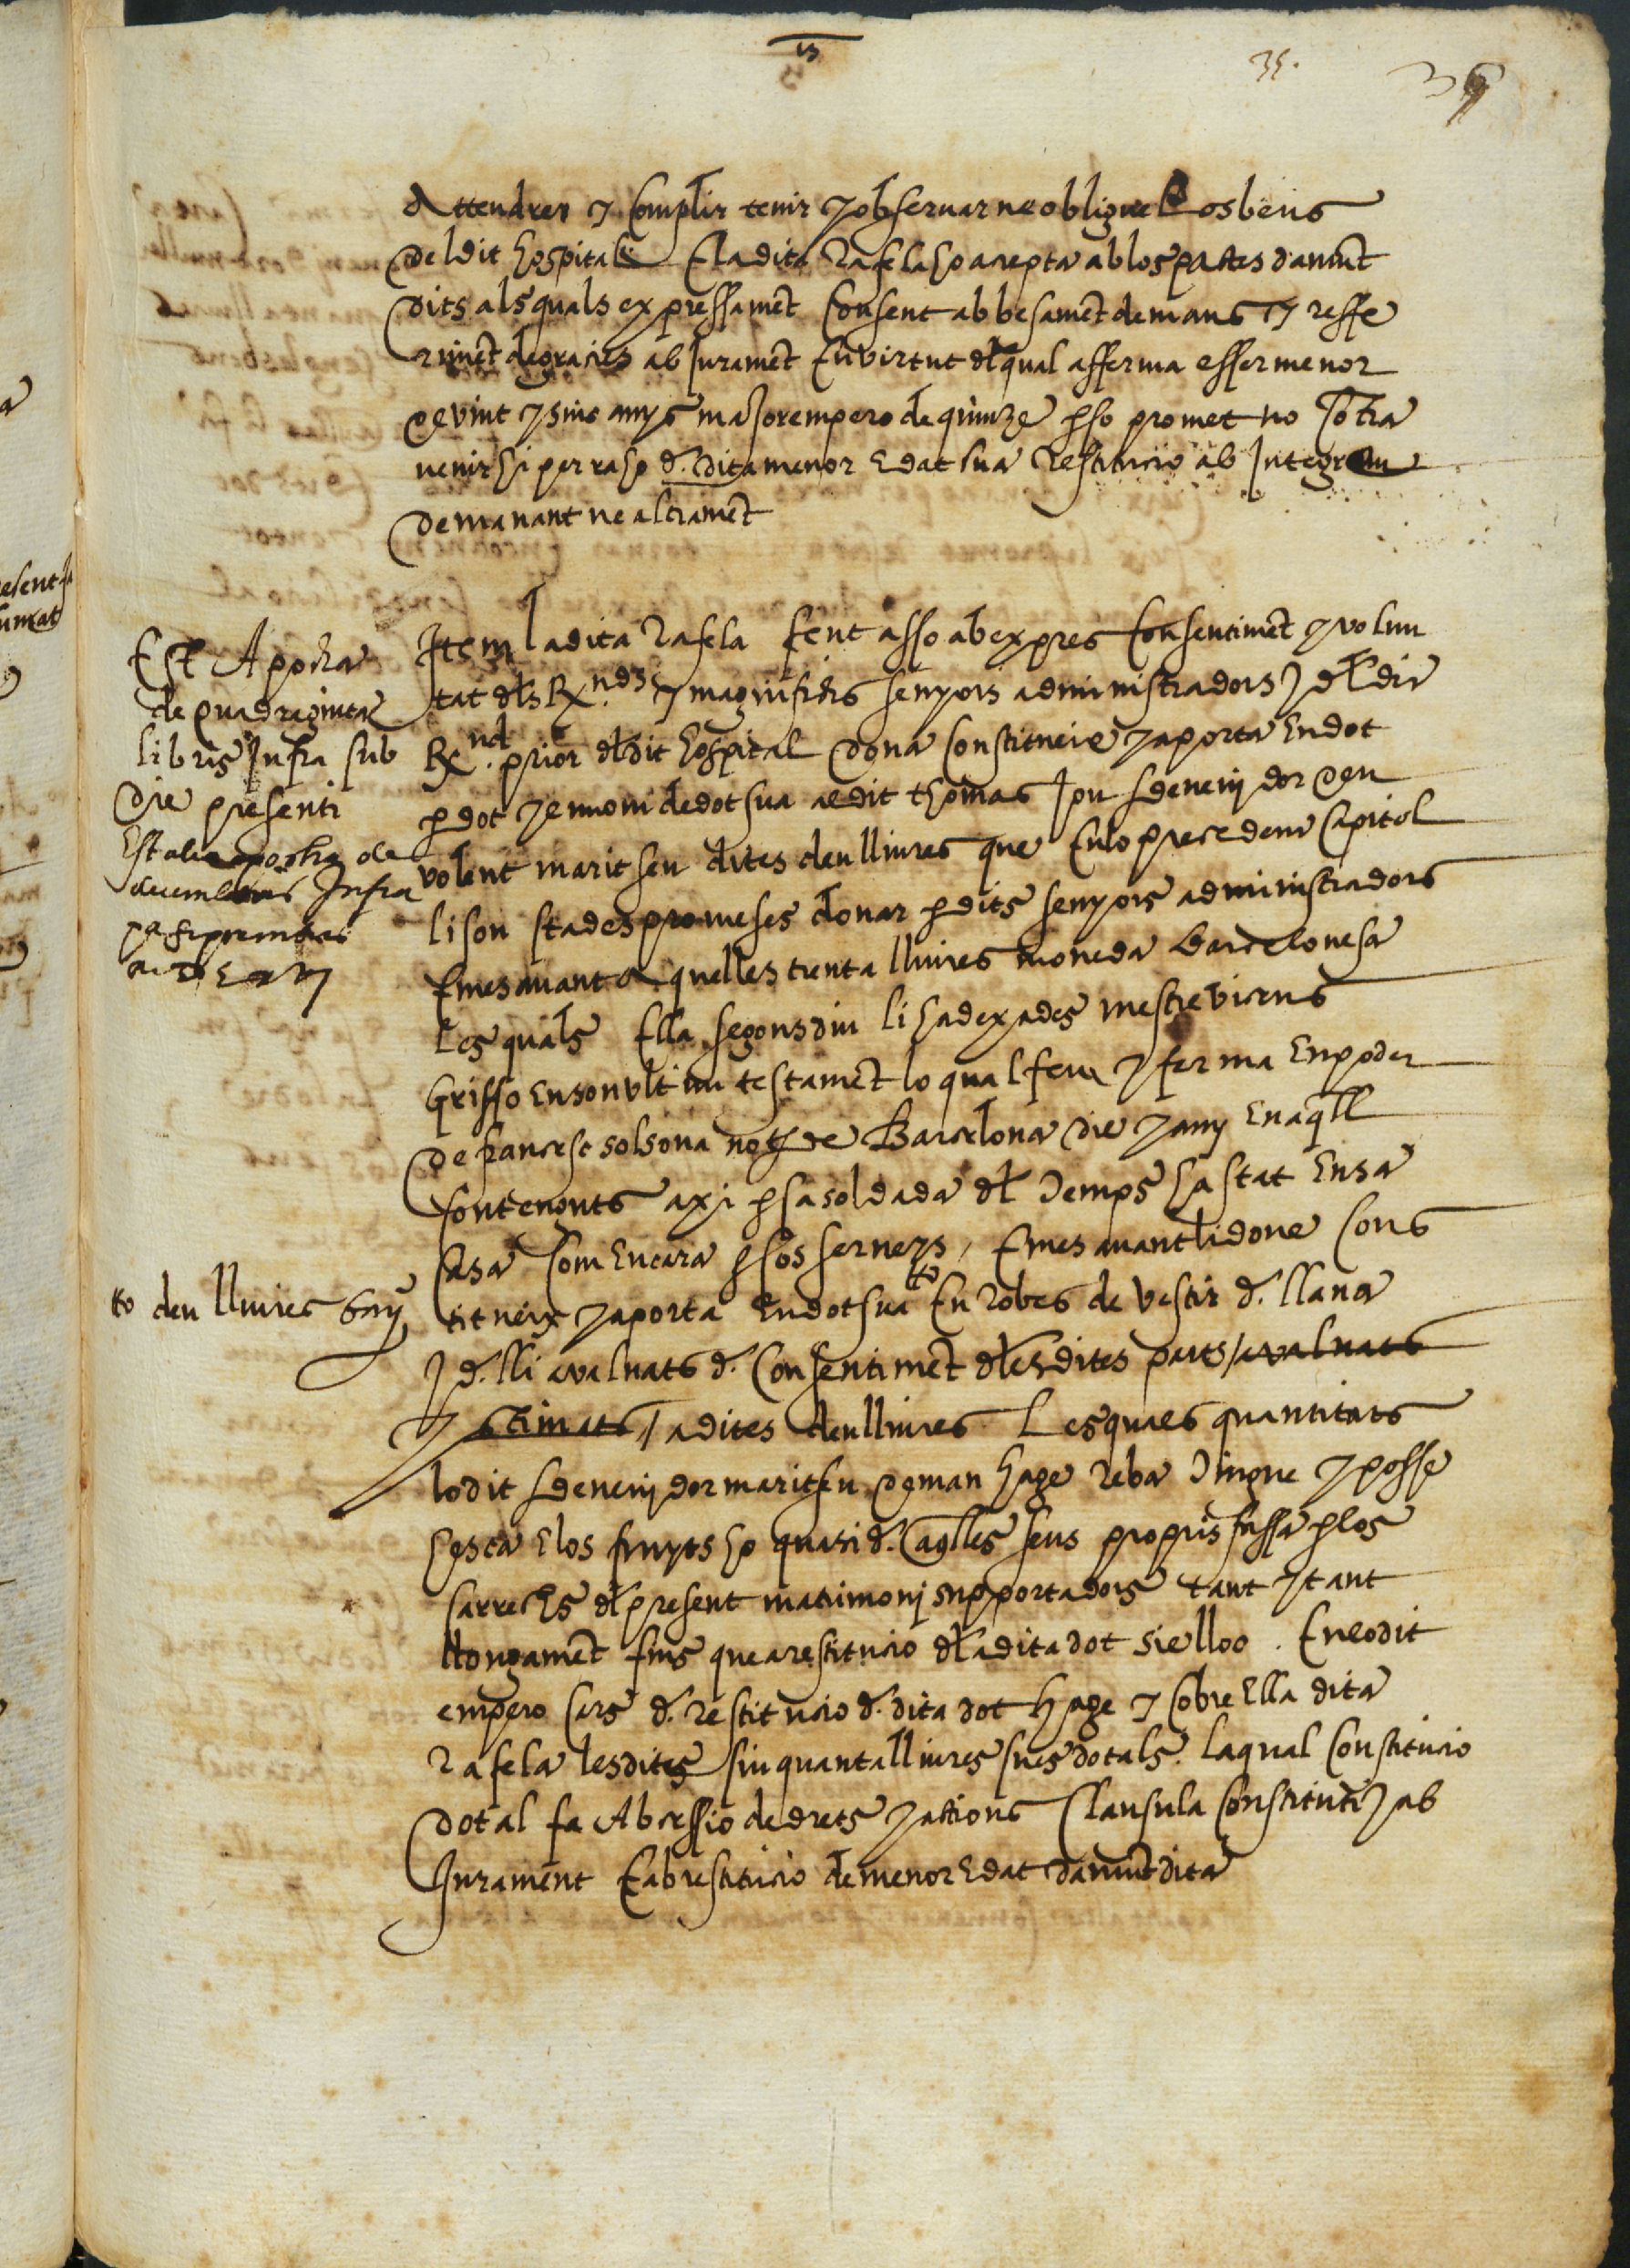 35.
Attendrer y Complir tenir y observar ne obligue los bens
del dit hospital E la dita Rafela ho accepta ab los pactes damunt
dits als quals expressament Consent ab besament de mans y reffe
riment de gracies ab Jurament En virtut del qual afferma esser menor
de vint y sinc anys major empero de quinze per so promet no Contra
venir hi per raho de dita menor Edat sua Restitucio ab Integrum
demanant ne altrament
Item la dita Rafela fent asso ab expres Consentiment y volun
tat dels Rx.nds y magnifichs senyors administradors y del dit
Rx.nd prior del dit hospital dona Constitueix y aporta En dot
per dot y en nom de dot sua al dit thomas Jou sdevenidor Deu
volent marit seu dites deu lliures que En lo precedent Capitol
li son stades promeses donar per dits senyors administradors
E mes avant aquelles trenta lliures moneda Barcelonesa
Les quals Ella segons diu li ha dexades mestre vicens
Grisso En son ultim testament lo qual feu y ferma En poder
de francesc solsona not. de Barcelona die y any En aquell
Contenguts axi per sa soldada del temps ha stat En sa
Casa Com Encara per sos serveys / E mes avant li done Cons
titueix y aporta En dot sua to En robes de vestir de llana
y de lli avaluats de Consentiment de les dites parts / avaluats
y stimats / a dites deu lliures Les quals quantitats
lo dit sdevenidor marit seu deman hage Reba tingue y posse
hesca E los fruyts ho quasi de aquelles seus propris fassa per los
Carrechs del present matrimoni supportadors tant y tant
llongament fins que a restitucio de la dita dot sie lloc. En lo dit
empero Cars de restitucio de dita dot hage y Cobre Ella dita
Rafela les dites sinquanta lliures sues dotals. La qual Constitucio
dotal fa Ab cessio de drets y actions Clausula Constituti y ab
Jurament E ab restitucio de menor Edat damunt dita
Est Apocha
de quadraginta
libris Infra sub
die presenti
Est alia apocha de
decem libris Infra
to deu lliures